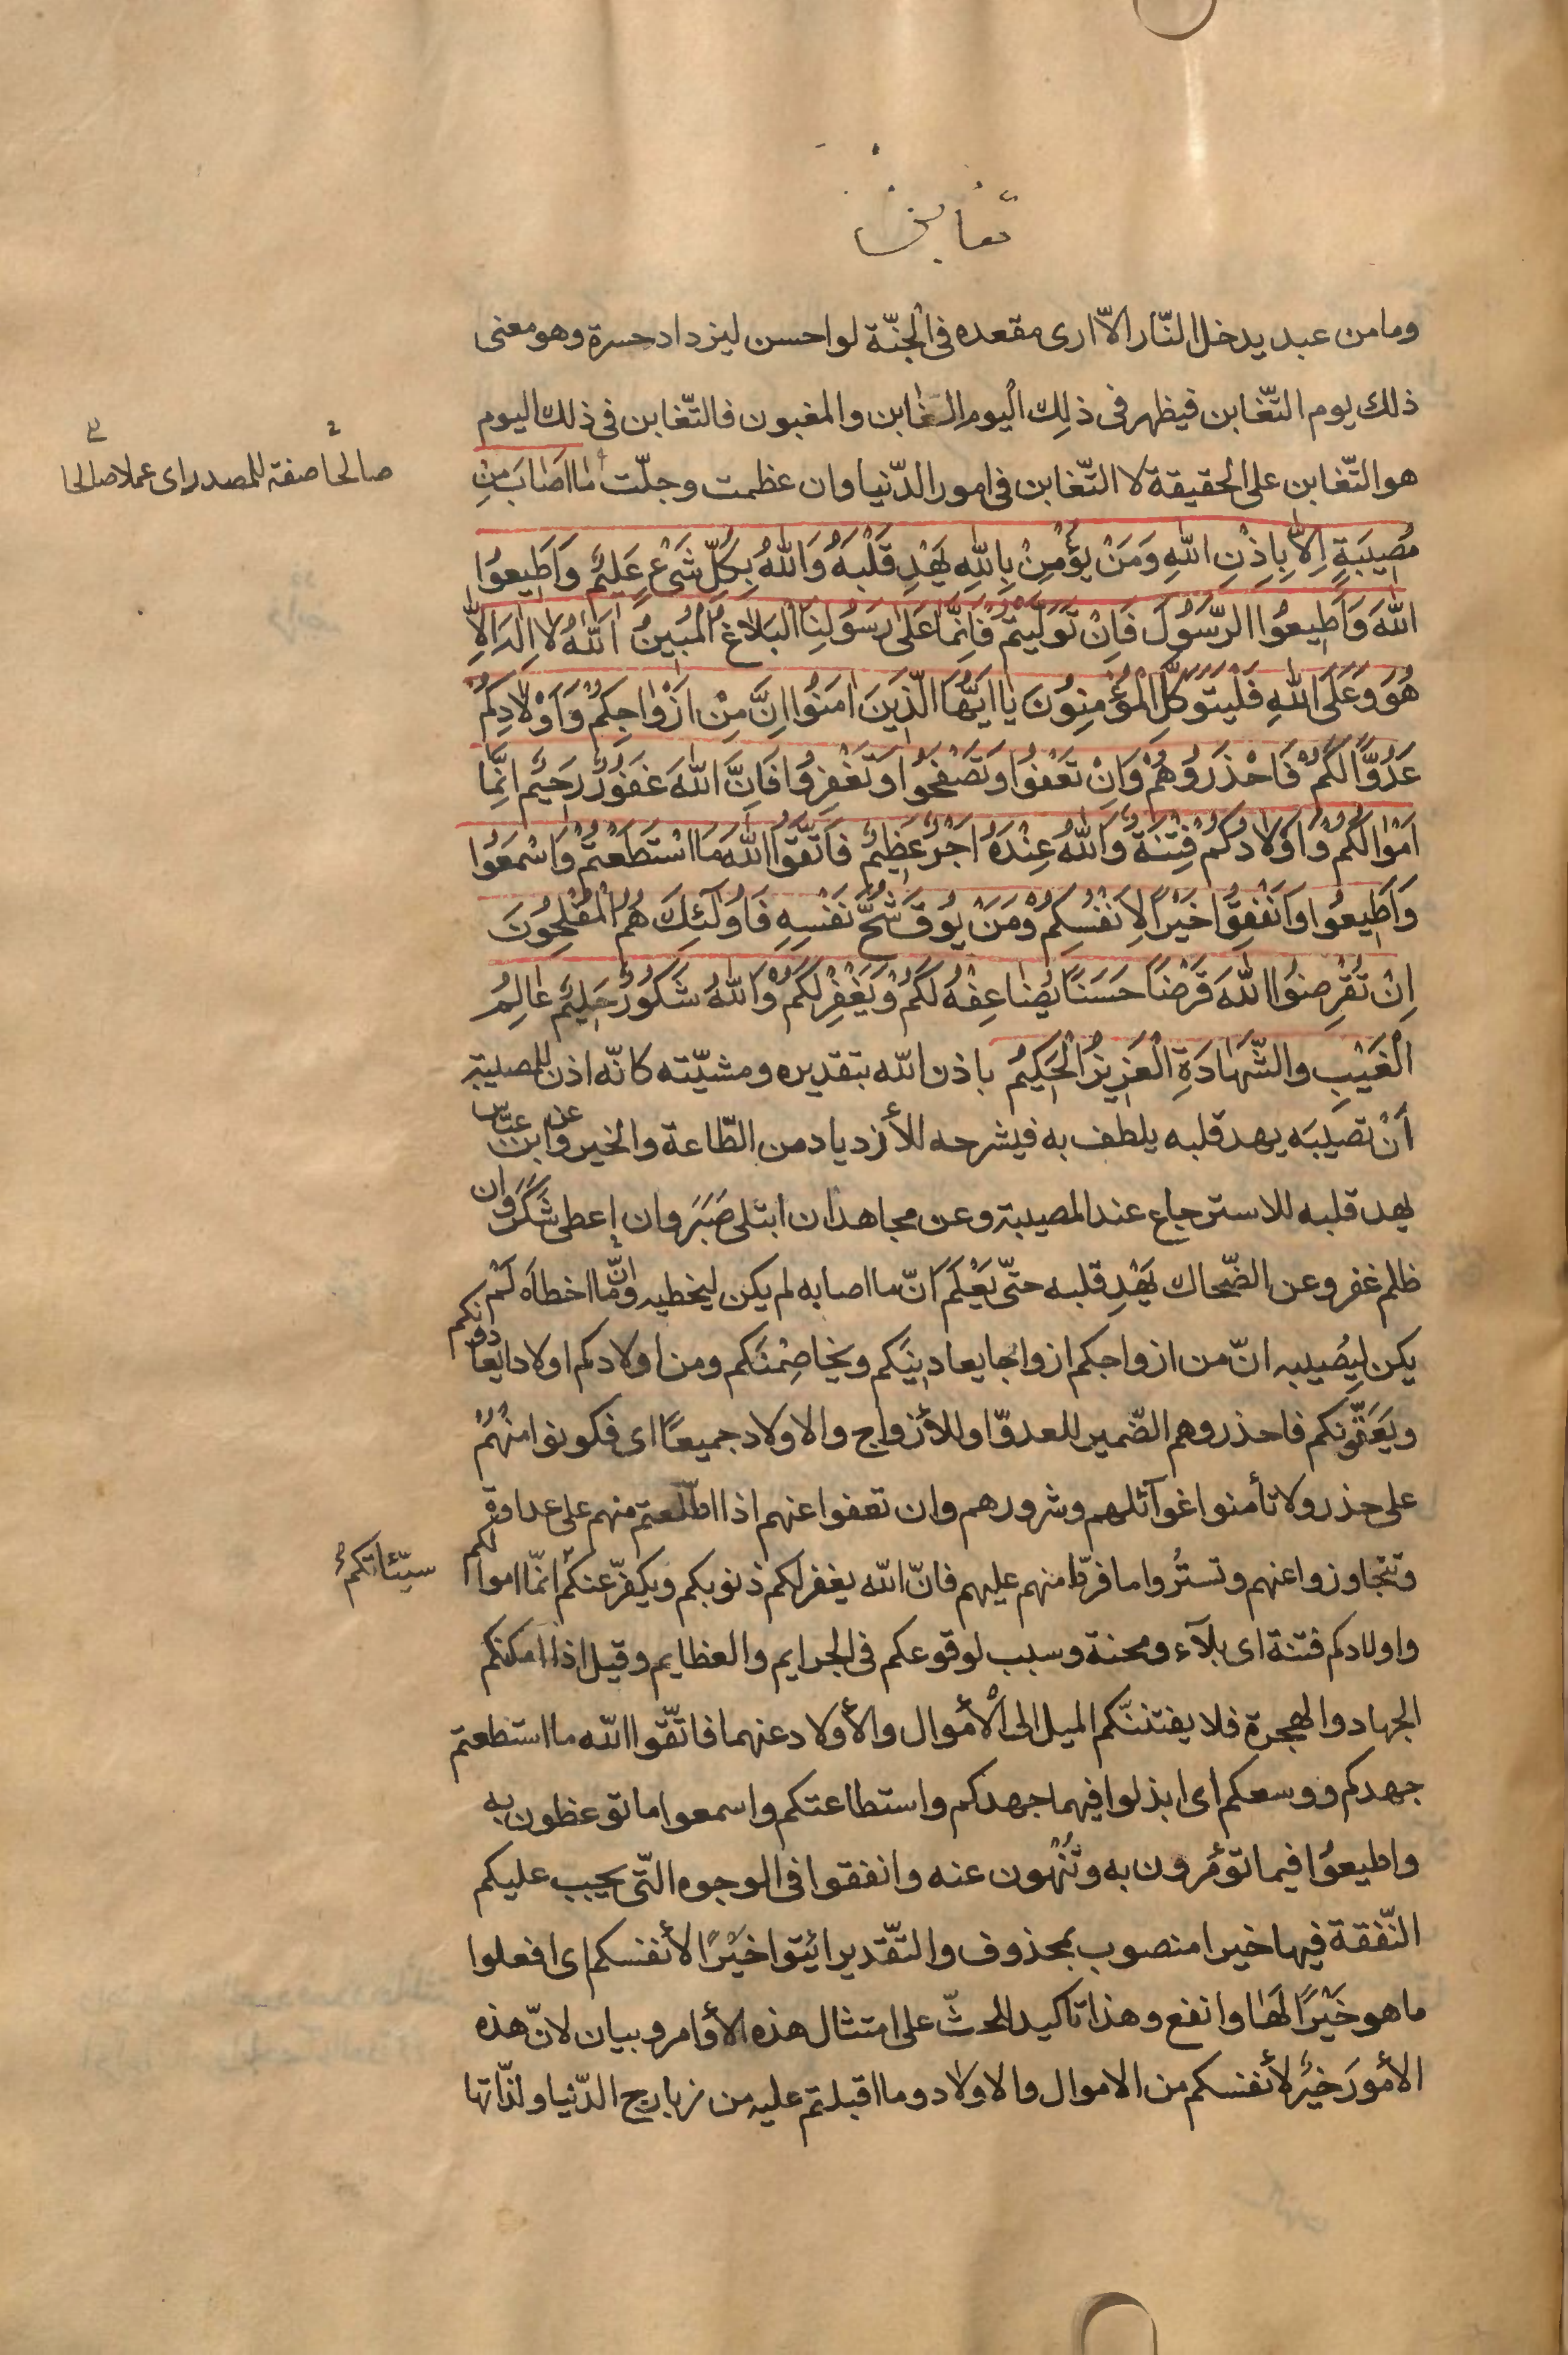 تغابن
وما من عبد يدخل النّار الاّ ارى مقعده فى الْجنّة لو احسن ليزداد حسرة وهو معنى
ذلك يوم التّغابن فيظهر فى ذلِك الْيوم الغٰابن والمغبون فالتّغابن فى ذلك اليوم
هو التّغابن على الْحقيقة لا التّغابن فى امور الدّنيا وان عظمت وجلّت مٰا اَصٰابَ مِنْ
صالحا صفة للمصدر اى عملا صالحا
مُصيبَةٍ اِلاّٰ بِاِذْنِ اللّٰهِ وَمَنْ يُؤْمِنْ بِاللّٰهِ يَهْدِ قَلْبَهُ وَاللّٰهُ بِكُلِّ شَىْءٍ عَليمٌ وَاَطيعُوا
اللّٰهَ وَاَطيعُوا الرَّسُولَ فَاِنْ تَوَلَّيْتُمْ فَاِنَّمٰا عَلىٰ رَسُولِنَا الْبَلاٰغُ الْمُبينُ اَللّٰهُ لاٰ اِلٰهَ اِلاّٰ
هُوَ وَعَلَى اللّٰهِ فَلْيَتَوَكَّلِ الْمُؤْمِنُونَ يٰا اَيُّهَا الَّذينَ اٰمَنُوا اِنَّ مِنْ اَزْوٰاجِكُمْ وَاَوْلاٰدِكُمْ
عَدُوًّا لَكُمْ فَاحْذَرُوهُمْ وَاِنْ تَعْفُوا وَتَصْفَحُوا وَتَغْفِرُوا فَاِنَّ اللّٰهَ غَفُورٌ رَحيمٌ اِنَّمٰا
اَمْوٰالُكُمْ وَاَوْلاٰدُكُمْ فِتْنَةٌ وَاللّٰهُ عِنْدَهُ اَجْرٌ عَظيمٌ فَاتَّقُوا اللّٰهَ مَا اسْتَطَعْتُمْ وَاسْمَعُوا
وَاَطيعُوا وَاَنْفِقُوا خَيْرًا لِاَنْفُسِكُمْ وَمَنْ يُوقَ شُحَّ نَفْسِهِ فَاُولٰٓئِكَ هُمُ الْمُفْلِحُونَ
اِنْ تُقْرِضُوا اللّٰهَ قَرْضًا حَسَنًا يُضٰاعِفْهُ لَكُمْ وَيَغْفِرْ لَكُمْ وَاللّٰهُ شَكُورٌ حَليمٌ عٰالِمُ
الْغَيْبِ والشَّهٰادَةِ الْعَزيزُ الْحَكيمُ باذن اللّه بتقديره ومشيّته كانّه اذن للمصيبة
اَنْ تصيبَه يهد قلبه يلطف به فيشرحه للأزدياد من الطّاعة والخير وعن ابن عبّاس
يهد قلبه للاسترجاع عند المصيبة وعن مجاهد ان ابتلى صَبَرَ وان اعطى شَكَرَ وان
ظلم غفر وعن الضّحاك يَهْدِ قلبه حتّى يَعْلَمَ انّ ما اصابه لم يكن ليخطيه وانّ ما اخطاَه لَمْ
يكن لِيُصيبه انّ من ازواجكم ازواجا يعادينَكم ويخاصِمْنَكم ومن اولادكم اولادا يعادونكم
ويَعَقُّونكم فاحذروهم الضّمير للعدوّ او للأزواج والاولاد جميعًا اى فكونوا منْهُمْ
على حذر ولا تأمنوا غوآئلهم وشرورهم وان تعفوا عنهم اذا اطّلعتم منهم على عداوة
وتتجاوزوا عنهم وتستُروا ما فرط منهم عليهم فانّ اللّه يغفر لكم ذنوبكم ويكفّر عنكم انّما اموالكم
سيّئاتكمْ
واولادكم فتنة اى بلآء ومحنة وسبب لوقوعكم فى الجرايم والعظايم وقيل اذا امكنكم
الجهاد والهجرة فلا يفتننّكم الميل الى الْأموال والأولاد عنهما فاتّقوا اللّه ما استطعتم
جهدكم ووسعكم اى ابذلوا فيهما جهدكم واستطاعتكم واسمعوا ما توعظون به
واطيعُوا فيما تؤمرون به وتُنْهون عنه وانفقوا فى الوجوه الّتى يجب عليكم
النّفقة فيها خيرا منصوب بمحذوف والتّقدير ائتوا خَيْرًا لأنفسكم اى افعلوا
ما هو خَيْرًا لَهٰا وانفع وهذا تاكيد للحثّ على امتثال هذه الأوامر وبيان لانّ هذه
الأمورَ خيرٌ لأنفسكم من الاموال والاولاد وما اقبلتم عليه من زبارج الدّنيا ولذّاتها